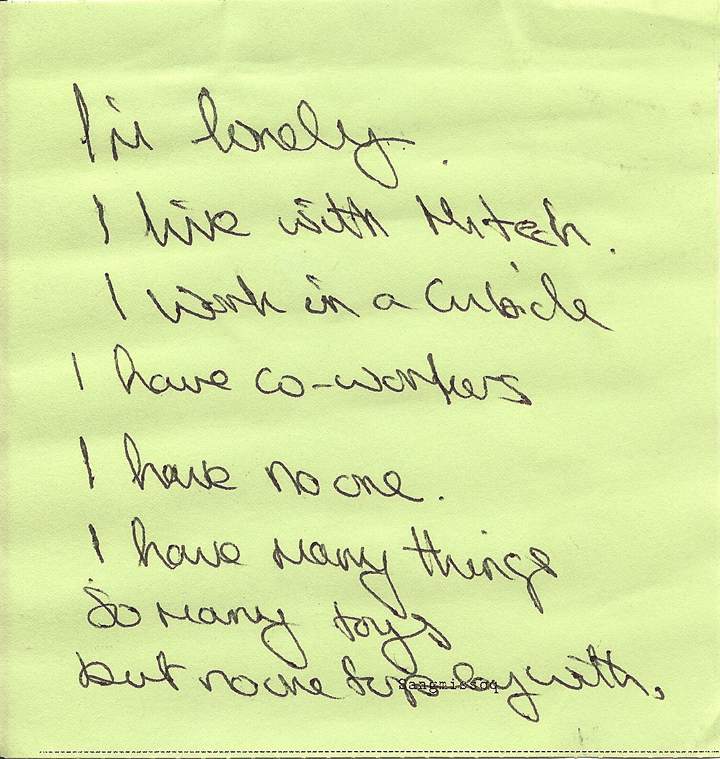 I'm lonely.
I live with Mitch.
I work in a cubicle
I have co-workers
I have no one.
I have many things
So many toys
but no one to play with.